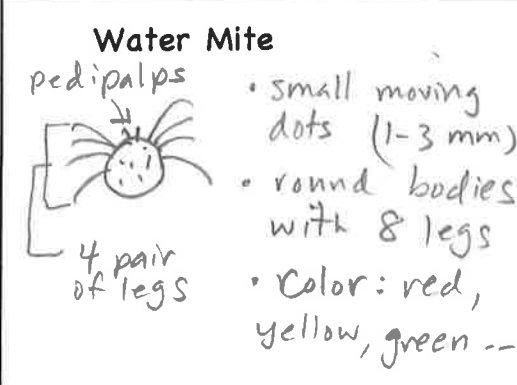 Water Mite
pedipalps
4 pair
of legs
• small moving
dots (1-3 mm)
• round bodies
with 8 legs
• Color: red,
yellow, green --